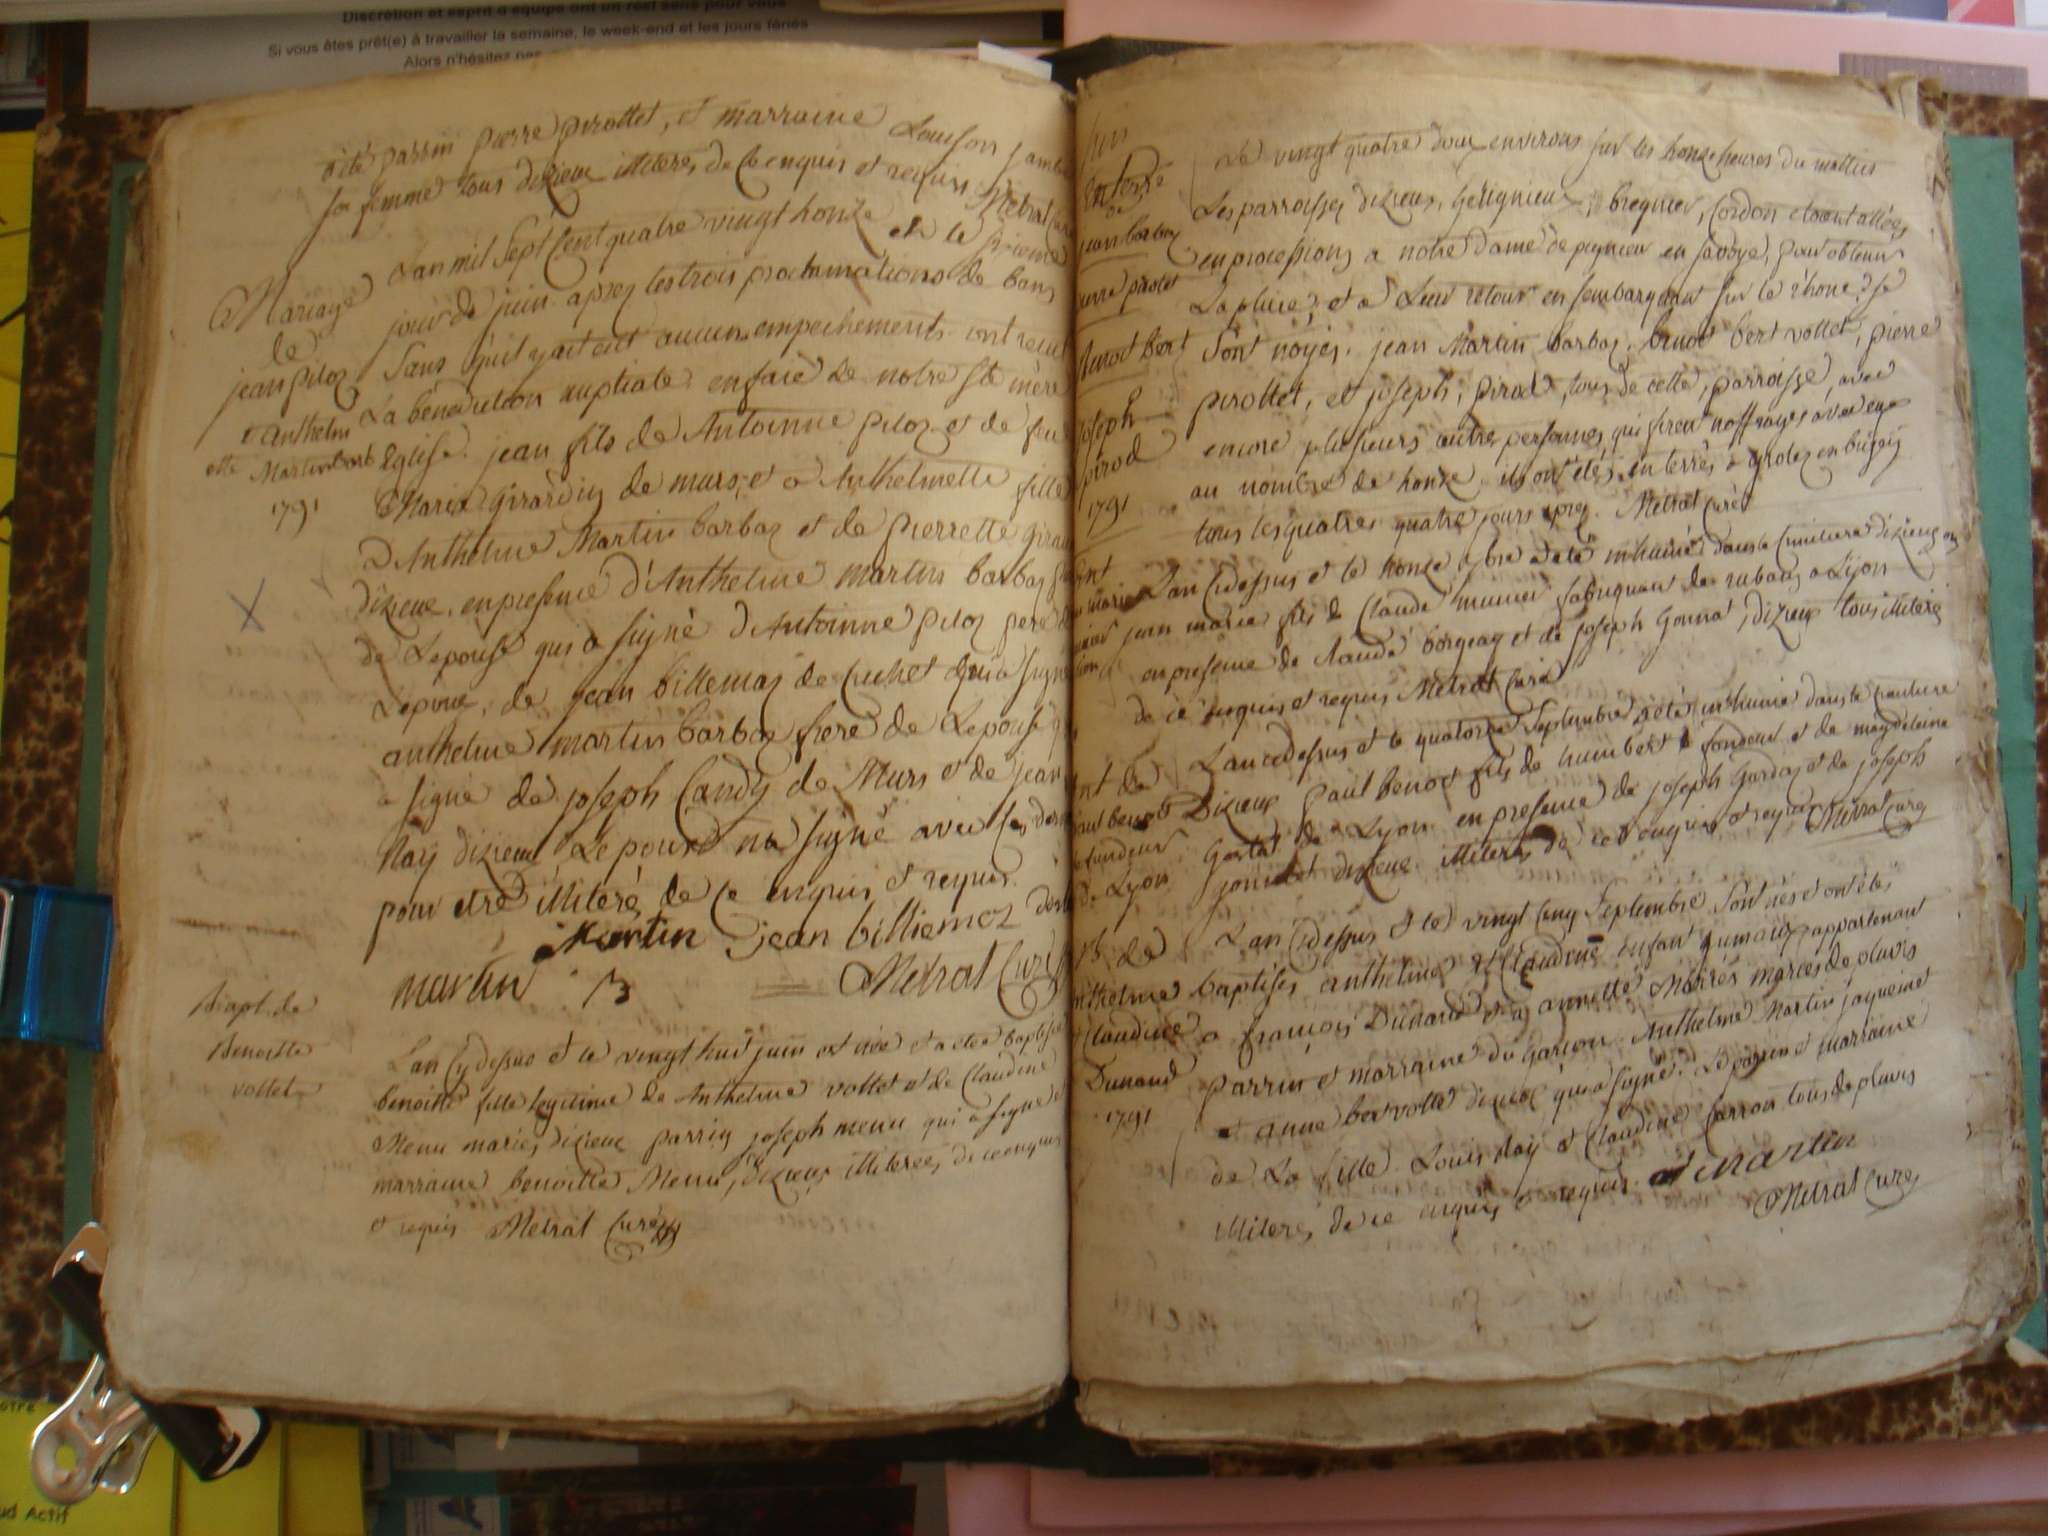 Discrétion et esprit d'équipe ont un réel sens pour vous
Si vous êtes prêt(e) à travailler la semaine, le week-end et les jours fériés
Alors n'hésitez pas
a été parrin pierre pirottet, et marraine Louison
sa femme tous dizieux illiterés, de ce enquis et requis Metral Curé
Mariage
de
jean piloz
et Anthelm
ette Martin barb
1791
Lan mil Sept Cent quatre vingt honze et le
jour de juin apres les trois proclamations de bans
Sans quil y ait eut aucuns empechements ont recut
La bénédiction nuptiale en face de notre Ste mère
Eglise. jean fils de Antoinne piloz et de feu
Maria girardin de murs, et a Anthelmette fille
D'Anthelme Martin barbaz et de pierrette
dizieux, en presence d'Anthelme martin barbaz
de Lepouse qui a signé d'Antoinne piloz pere de
Lepoux, de jean billemaz de Cuchet qui a signé
anthelme martin barbaz frere de Lepouse qui
a signé de joseph Candy de Murs et de jean
Nay dizieux Lepoux na signé avec
pour etre illiterés de ce enquis et requis.
Martin jean billiemoz
martin Metral Curé
Bapt. de
Benoitte
vottet
Lan Cy dessus et le vingt huit juin est née et a eté baptisé
benoitte fille legitime de Anthelme vottet et de Claudine
Menu mariés dizieux parrin joseph menu qui a signé et
marraine benoitte Menu, dizieux illiterées, de ce enquis
et requis Metral Curé
Enterré
de
jean barbaz
pierre pirotet
Benoit bert
joseph
pirod
1791
Le vingt quatre d'oux environs sur les honze heures du mattin
Les parroisses dizieux, gelignieux, bregnier, Cordon étoent allées
en processions a notre Dame de pignieu en savoye, pour obtenir
La pluie, et a Leur retour en sembarquant sur le rhone, se
Sont noyés. jean Martin barbaz, benoit bert vottet, pierre
pirottet, et joseph, pirod, tous de cette, parroisse, avec
encore plusieurs autres personnes, qui firent noffrages avec eux
au nombre de honze ils ont étés, enterrés a grolez en bugey
tous les quatres quatre jours apres. Metral Curé
Lan Cydessus et le honze 7bre a eté inhumé dans le Cimitiere dizieux
jean marie fils de Claude munier fabriquant de rubans a Lyon
en presence de Claude borgeay et de joseph gonnat, dizieux tous illiterés
de ce enquis et requis Metral Curé
Lan cidessus et le quatorze Septembre a été inhumé dans le Cimitiere
Dizieux paul benoit fils de humbert fondeur et de magdelaine
de Lyon en presence de joseph gardaz et de joseph
dizieux illiterés de ce enquis et requis Metral Curé
fundeur
de Lyon
Lan Cydessus et le vingt Cinq Septembre Sont nés et ont étés
baptisés anthelme et Claudine enfant jumaux appartenant
a françois Dunand et a annette mariés de plavis
parrin et marraine du garçon Anthelme Martin jaquemet
et anne bert vottet dizieux qui a signé. Le parrin et marraine
de La fille Louis Nay et Claudine Carron tous de plavis
illiterés, de ce enquis et requis Martin
Metral Curé
Bt. de
anthelme
Claudine
Dunand
1791